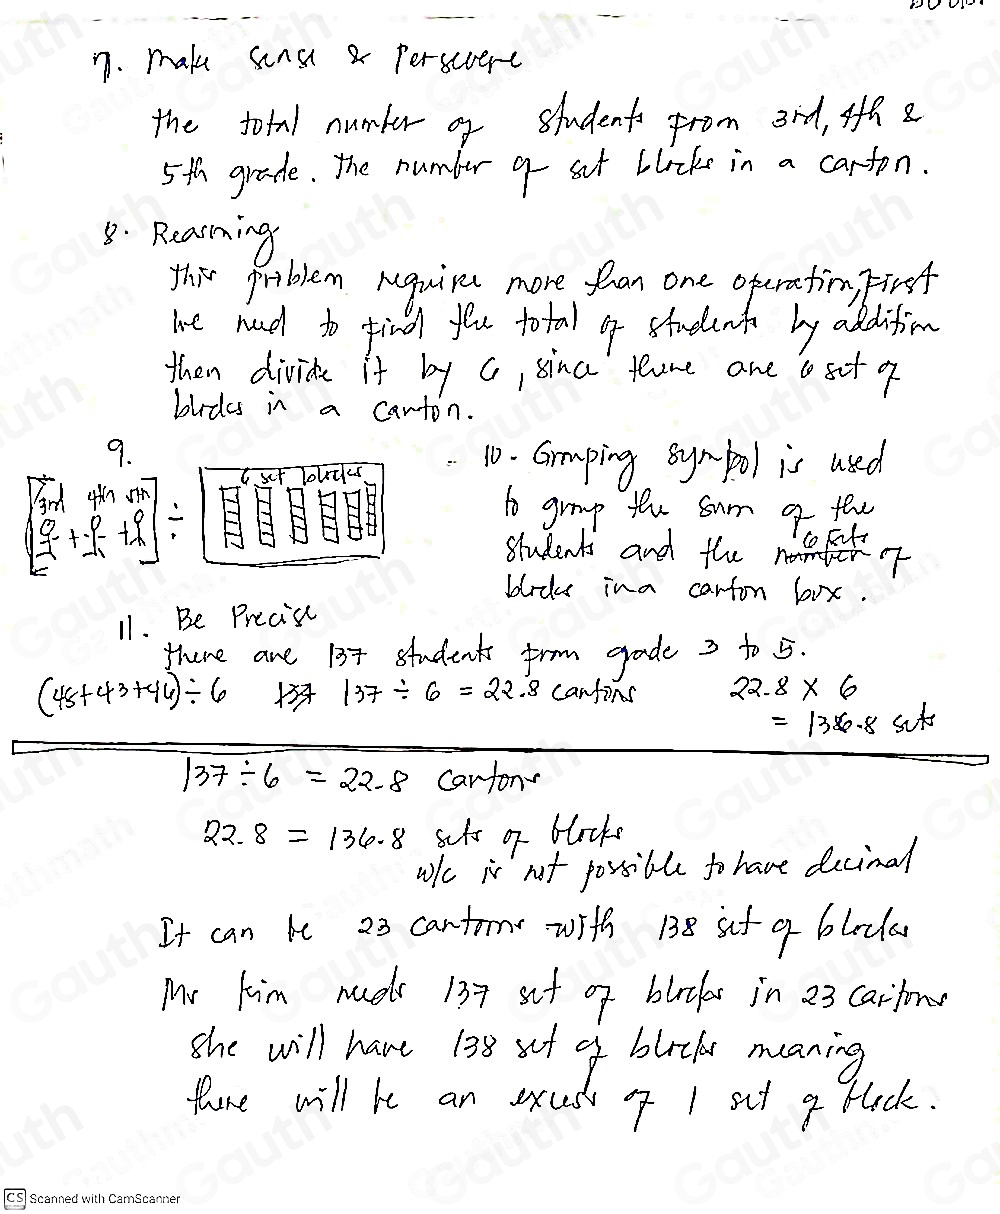 7. Make sense & Persevere
the total number of students from 3rd, 4th &
5th grade. The number of set blocks in a carton.
8. Reasoning
This problem require more than one operation, First
we need to find the total of students by addition
then divide it by 6, since there are 6 set of
blocks in a carton.
9.
3rd 4th 5th
+ +
÷
6 set blocks
10. Grouping symbol is used
to group the sum of the
students and the 6 sets of
blocks in a carton box.
11. Be Precise
There are 137 students from grade 3 to 5.
(48+43+46) ÷ 6 137 ÷ 6 = 22.8 cartons 22.8 x 6
= 136.8 sets
137 ÷ 6 = 22.8 cartons
22.8 = 136.8 sets of blocks
w/c is not possible to have decimal
It can be 23 cartons with 138 set of blocks
Ms Kim needs 137 set of blocks in 23 cartons
she will have 138 set of blocks meaning
there will be an excess of 1 set of block.
CS Scanned with CamScanner
Gauth